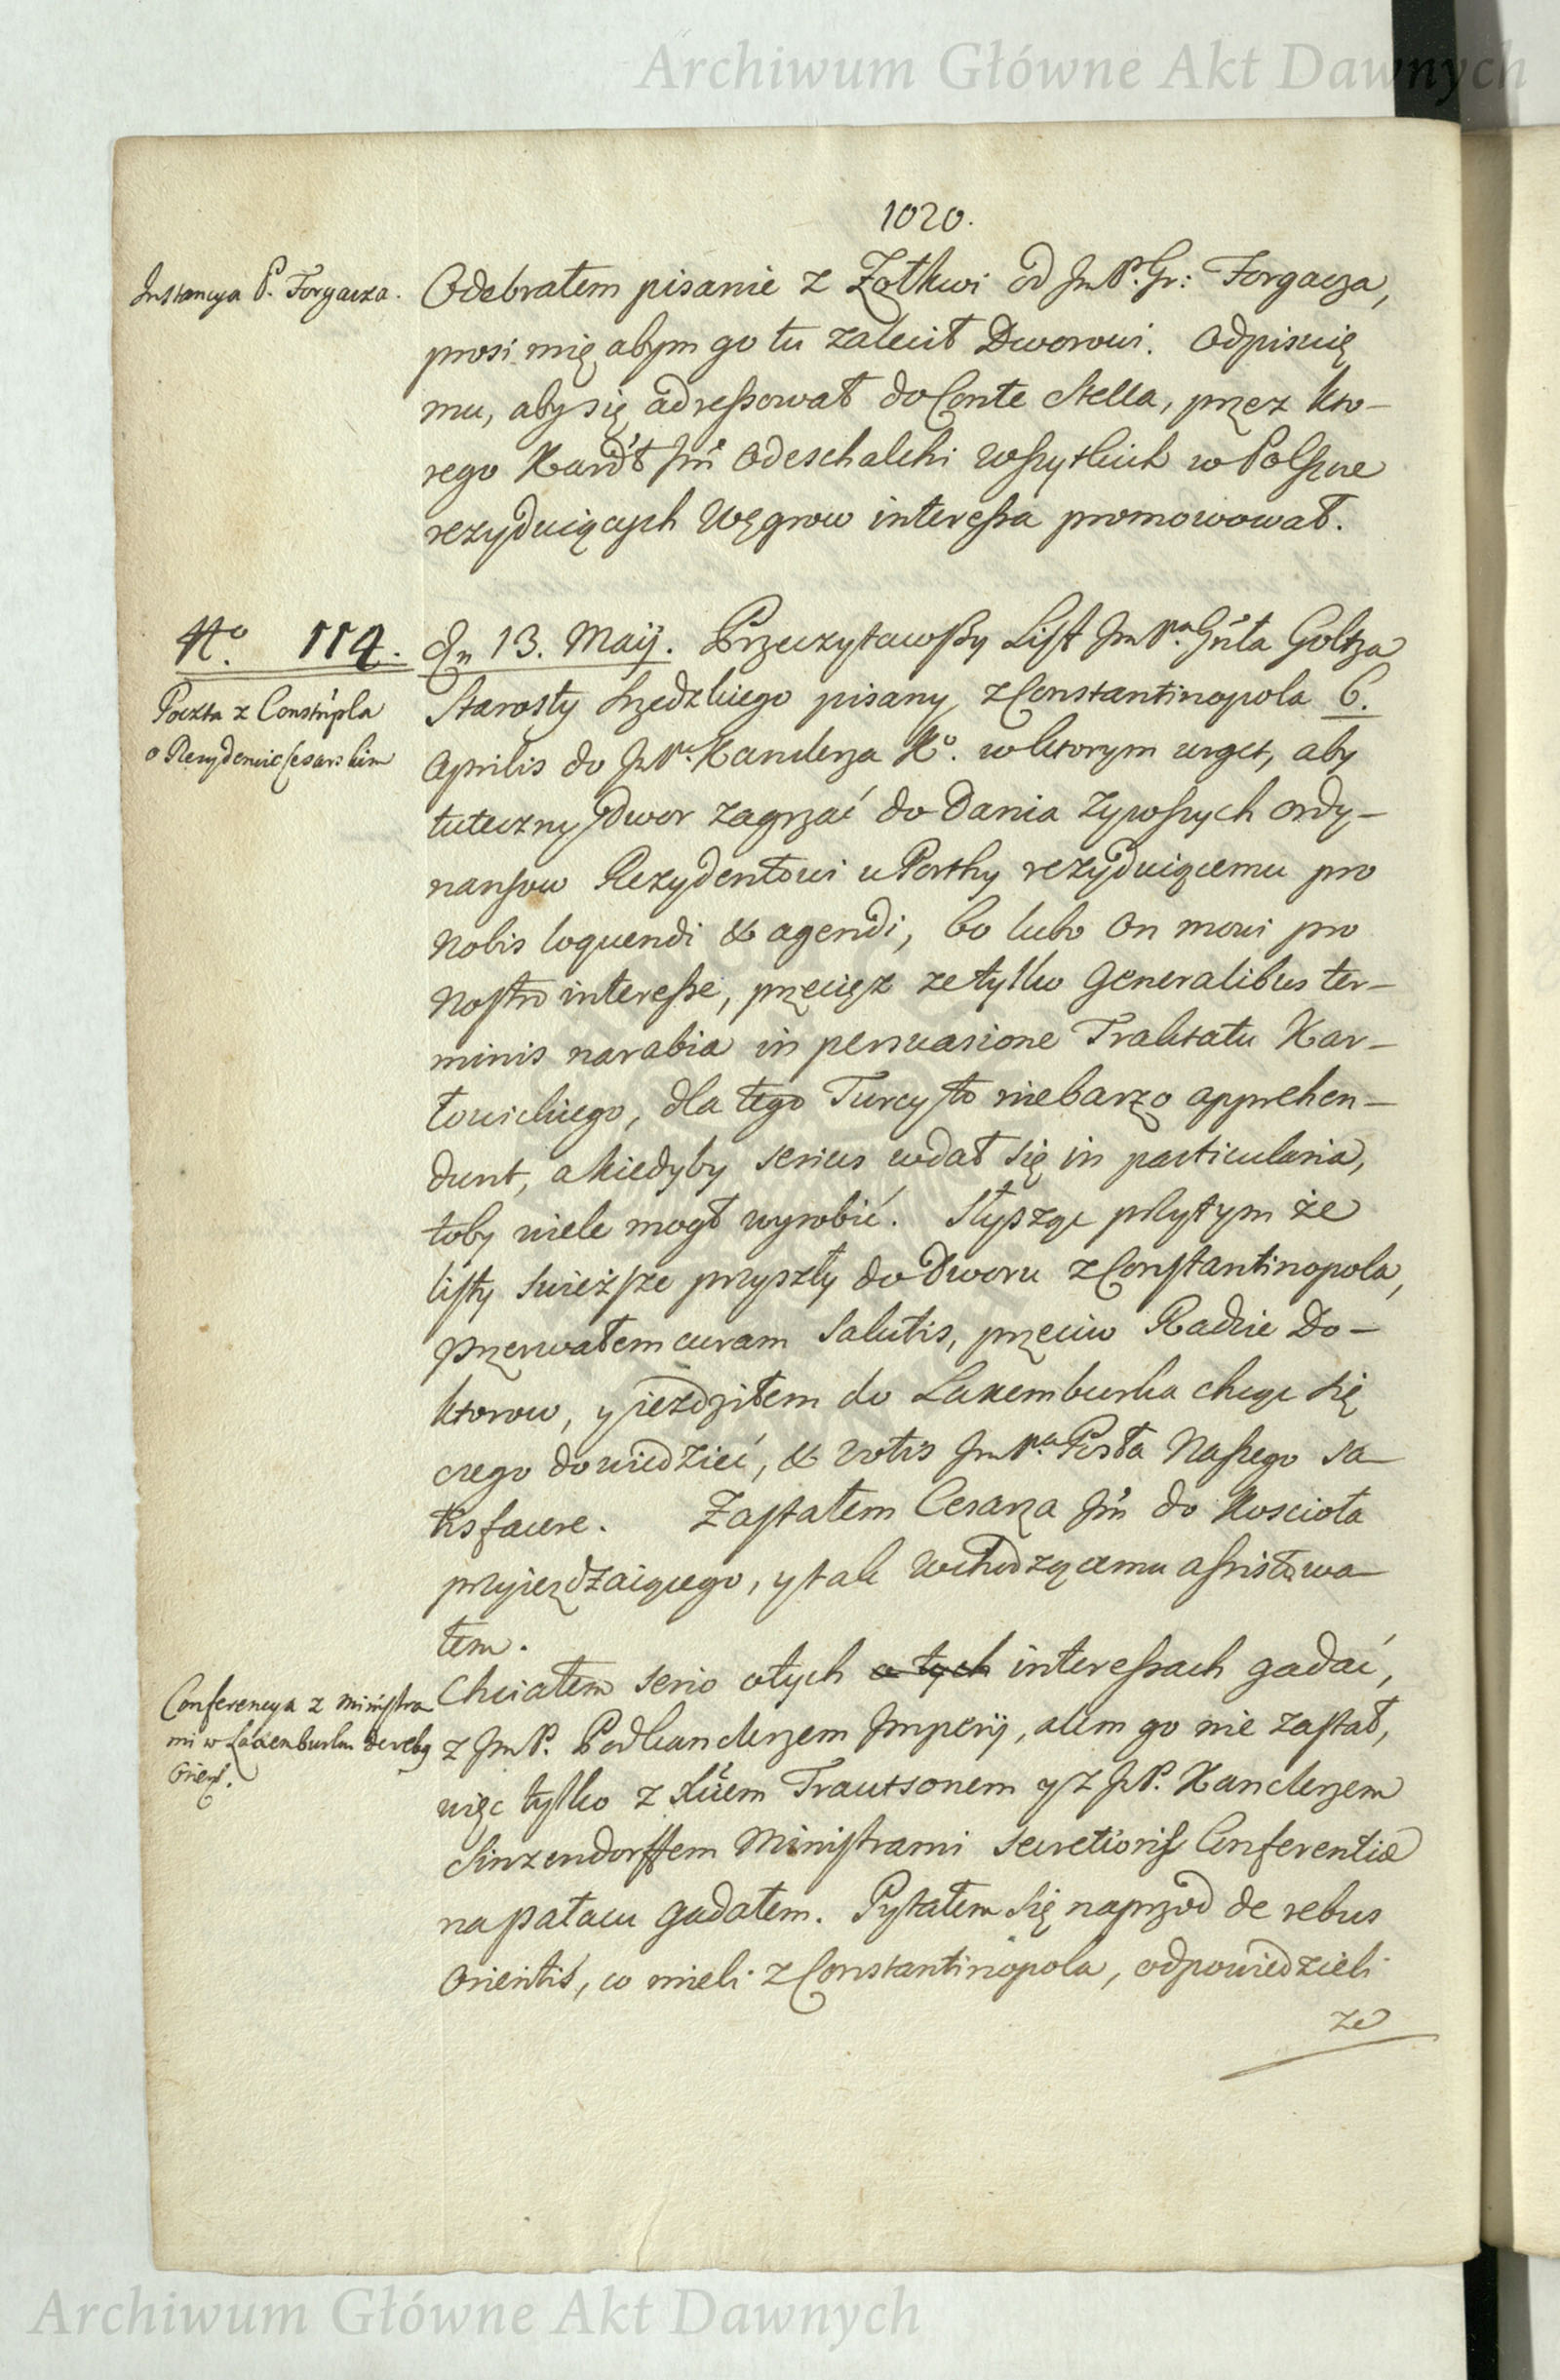 Archiwum Główne Akt Dawnych
1020.
Instancya P. Forgacza.
Odebrałem pisanie z Żołkwi od JmP. Gr: Forgacza,
prosi mię abym go tu zalecił Dworowi. Odpisuię
mu, aby się adressował do Conte Stella, przez kto-
rego Kard'ł Jm̃ Odeschalchi wszytkich w Polszcze
rezyduiących Węgrow interessa promowował.
No. 114.
Dn 13. Maij. Przeczytawszy List JmPa. Gn̄ła Goltza
Poczta z Constnpla
o Rezydencie Cesarskim
Starosty Szredzkiego pisany z Constantinopola 6.
Aprilis do JmPa. Kanclerza Ko. w ktorym urget, aby
tuteczny Dwor zagrzać do dania żywszych ordy-
nansow Rezydentowi u Porthy rezyduiącemu pro
Nobis loquendi & agendi, bo lubo On mowi pro
Nostro interesse, przecięż że tylko Generalibus ter-
minis narabia in persuasione Traktatu Kar-
łowickiego, dla tego Turcy to niebarzo apprehen-
dunt, a kiedyby serius wdał się in particularia,
toby wiele mogł wyrobić. Słysząc przytym że
listy swieższe przyszły do Dworu z Constantinopola,
przerwałem curam Salutis, przeciw Radzie Do-
ktorow, y iezdziłem do Laxemburka chcąc się
czego dowiedzieć, & votis JmPa. Posła Naszego sa-
tisfacere. Zastałem Cesarza Jm̃ do Koscioła
przyiezdzaiącego, y tak wchodzącemu assistowa-
łem.
Conferencya z Ministra
mi w Laxenburku de rebg
Orient.
Chciałem serio o tych o tych interessach gadać,
z JmP. Podkanclerzem Imperij, alem go nie zastał,
więc tylko z Xc̃iem Trautsonem y z JmP. Kanclerzem
Sinzendorffem Ministrami secretioris Conferentiæ
na pałacu gadałem. Pytałem się naprzod de rebus
Orientis, co mieli z Constantinopola, odpowiedzieli
że
Archiwum Główne Akt Dawnych